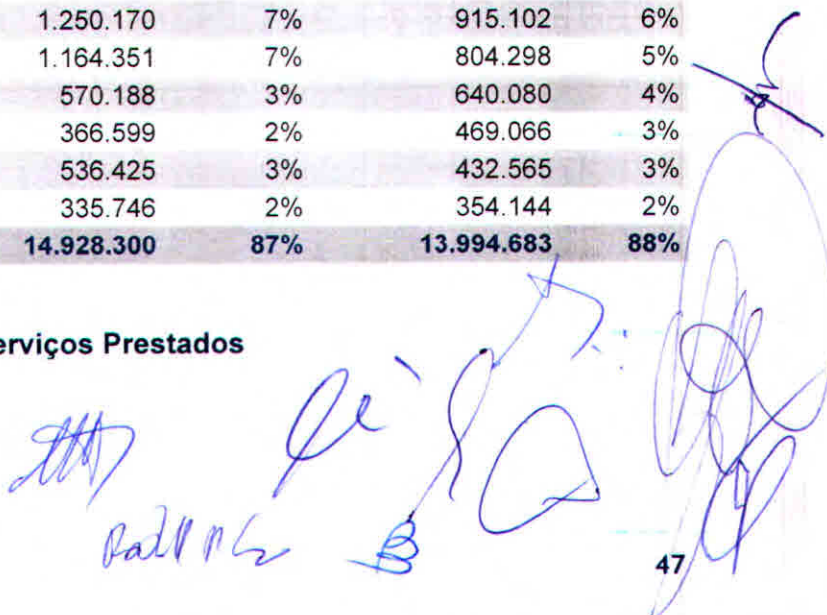 1.250.170 7% 915.102 6%
1.164.351 7% 804.298 5%
570.188 3% 640.080 4%
366.599 2% 469.066 3%
536.425 3% 432.565 3%
335.746 2% 354.144 2%
14.928.300 87% 13.994.683 88%
erviços Prestados
47